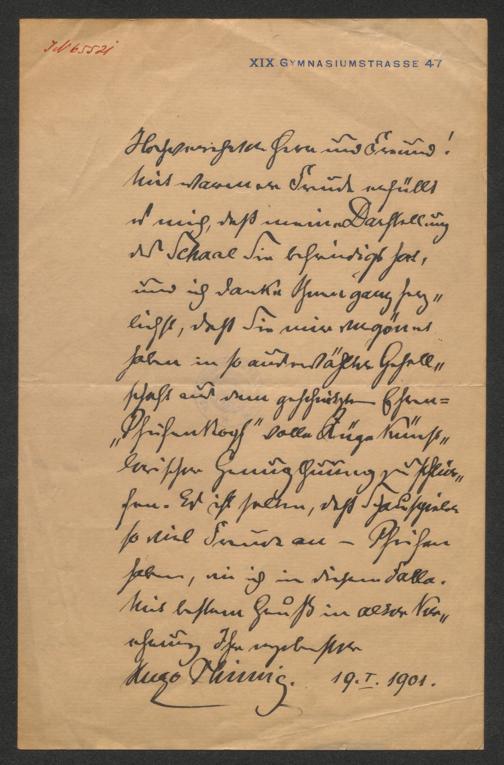 IN 65521
XIX GYMNASIUMSTRASSE 47
Hochverehrter Herr und Freund!
Mit warmer Freude erfüllt
es mich, daß meine Darstellung
des Schaal Sie befriedigt hat,
und ich danke Ihnen ganz herz„
lichst, daß Sie mir vergönnt
haben in so auserwählter Gesell„
schaft aus dem geschnitzten Ehren=
„Pfeifenkopf" volle Züge künst„
lerischer Genugthuung zu schlür„
fen. Es ist selten, daß Schauspieler
so viel Freude an – Pfeifen
haben, wie ich in diesem Falle.
Mit bestem Gruß in alter Ver„
ehrung Ihr ergebenster
Hugo Thimig. 19.I.1901.